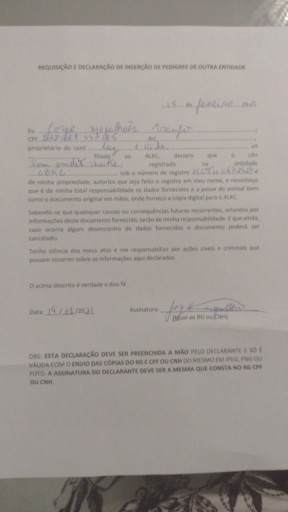 REQUISIÇÃO E DECLARAÇÃO DE INSERÇÃO DE PEDIGREE DE OUTRA ENTIDADE
15 de fevereiro de
Eu Jorge Magalhães
CPF nº
proprietário do canil e
filiado ao ALKC, declaro que o cão
registrado na entidade
CBKC sob o número de registro
de minha propriedade, autorizo que seja feito o registro em meu nome, e reconheço
que é de minha total responsabilidade os dados fornecidos e a posse do animal bem
como o documento original em mãos, onde forneço a cópia digital para o ALKC.
Sabendo ne que quaisquer causas ou consequências futuras recorrentes, oriundos por
informações deste documento fornecido, serão de minha responsabilidade. E que ainda,
caso ocorra algum desencontro de dados fornecidos o documento poderá ser
cancelado.
Tenho ciência dos meus atos e me responsabilizo por ações cíveis e criminais que
possam recorrer sobre as informações aqui declaradas.
O acima descrito é verdade e dou fé
Data: Assinatura:
(Igual ao RG ou CNH)
OBS: ESTA DECLARAÇÃO DEVE SER PREENCHIDA A MÃO PELO DECLARANTE E SÓ É
VÁLIDA COM O ENVIO DAS CÓPIAS DO RG E CPF OU CNH DO MESMO EM JPEG, PNG OU
FOTO. A ASSINATURA DO DECLARANTE DEVE SER A MESMA QUE CONSTA NO RG CPF
OU CNH.